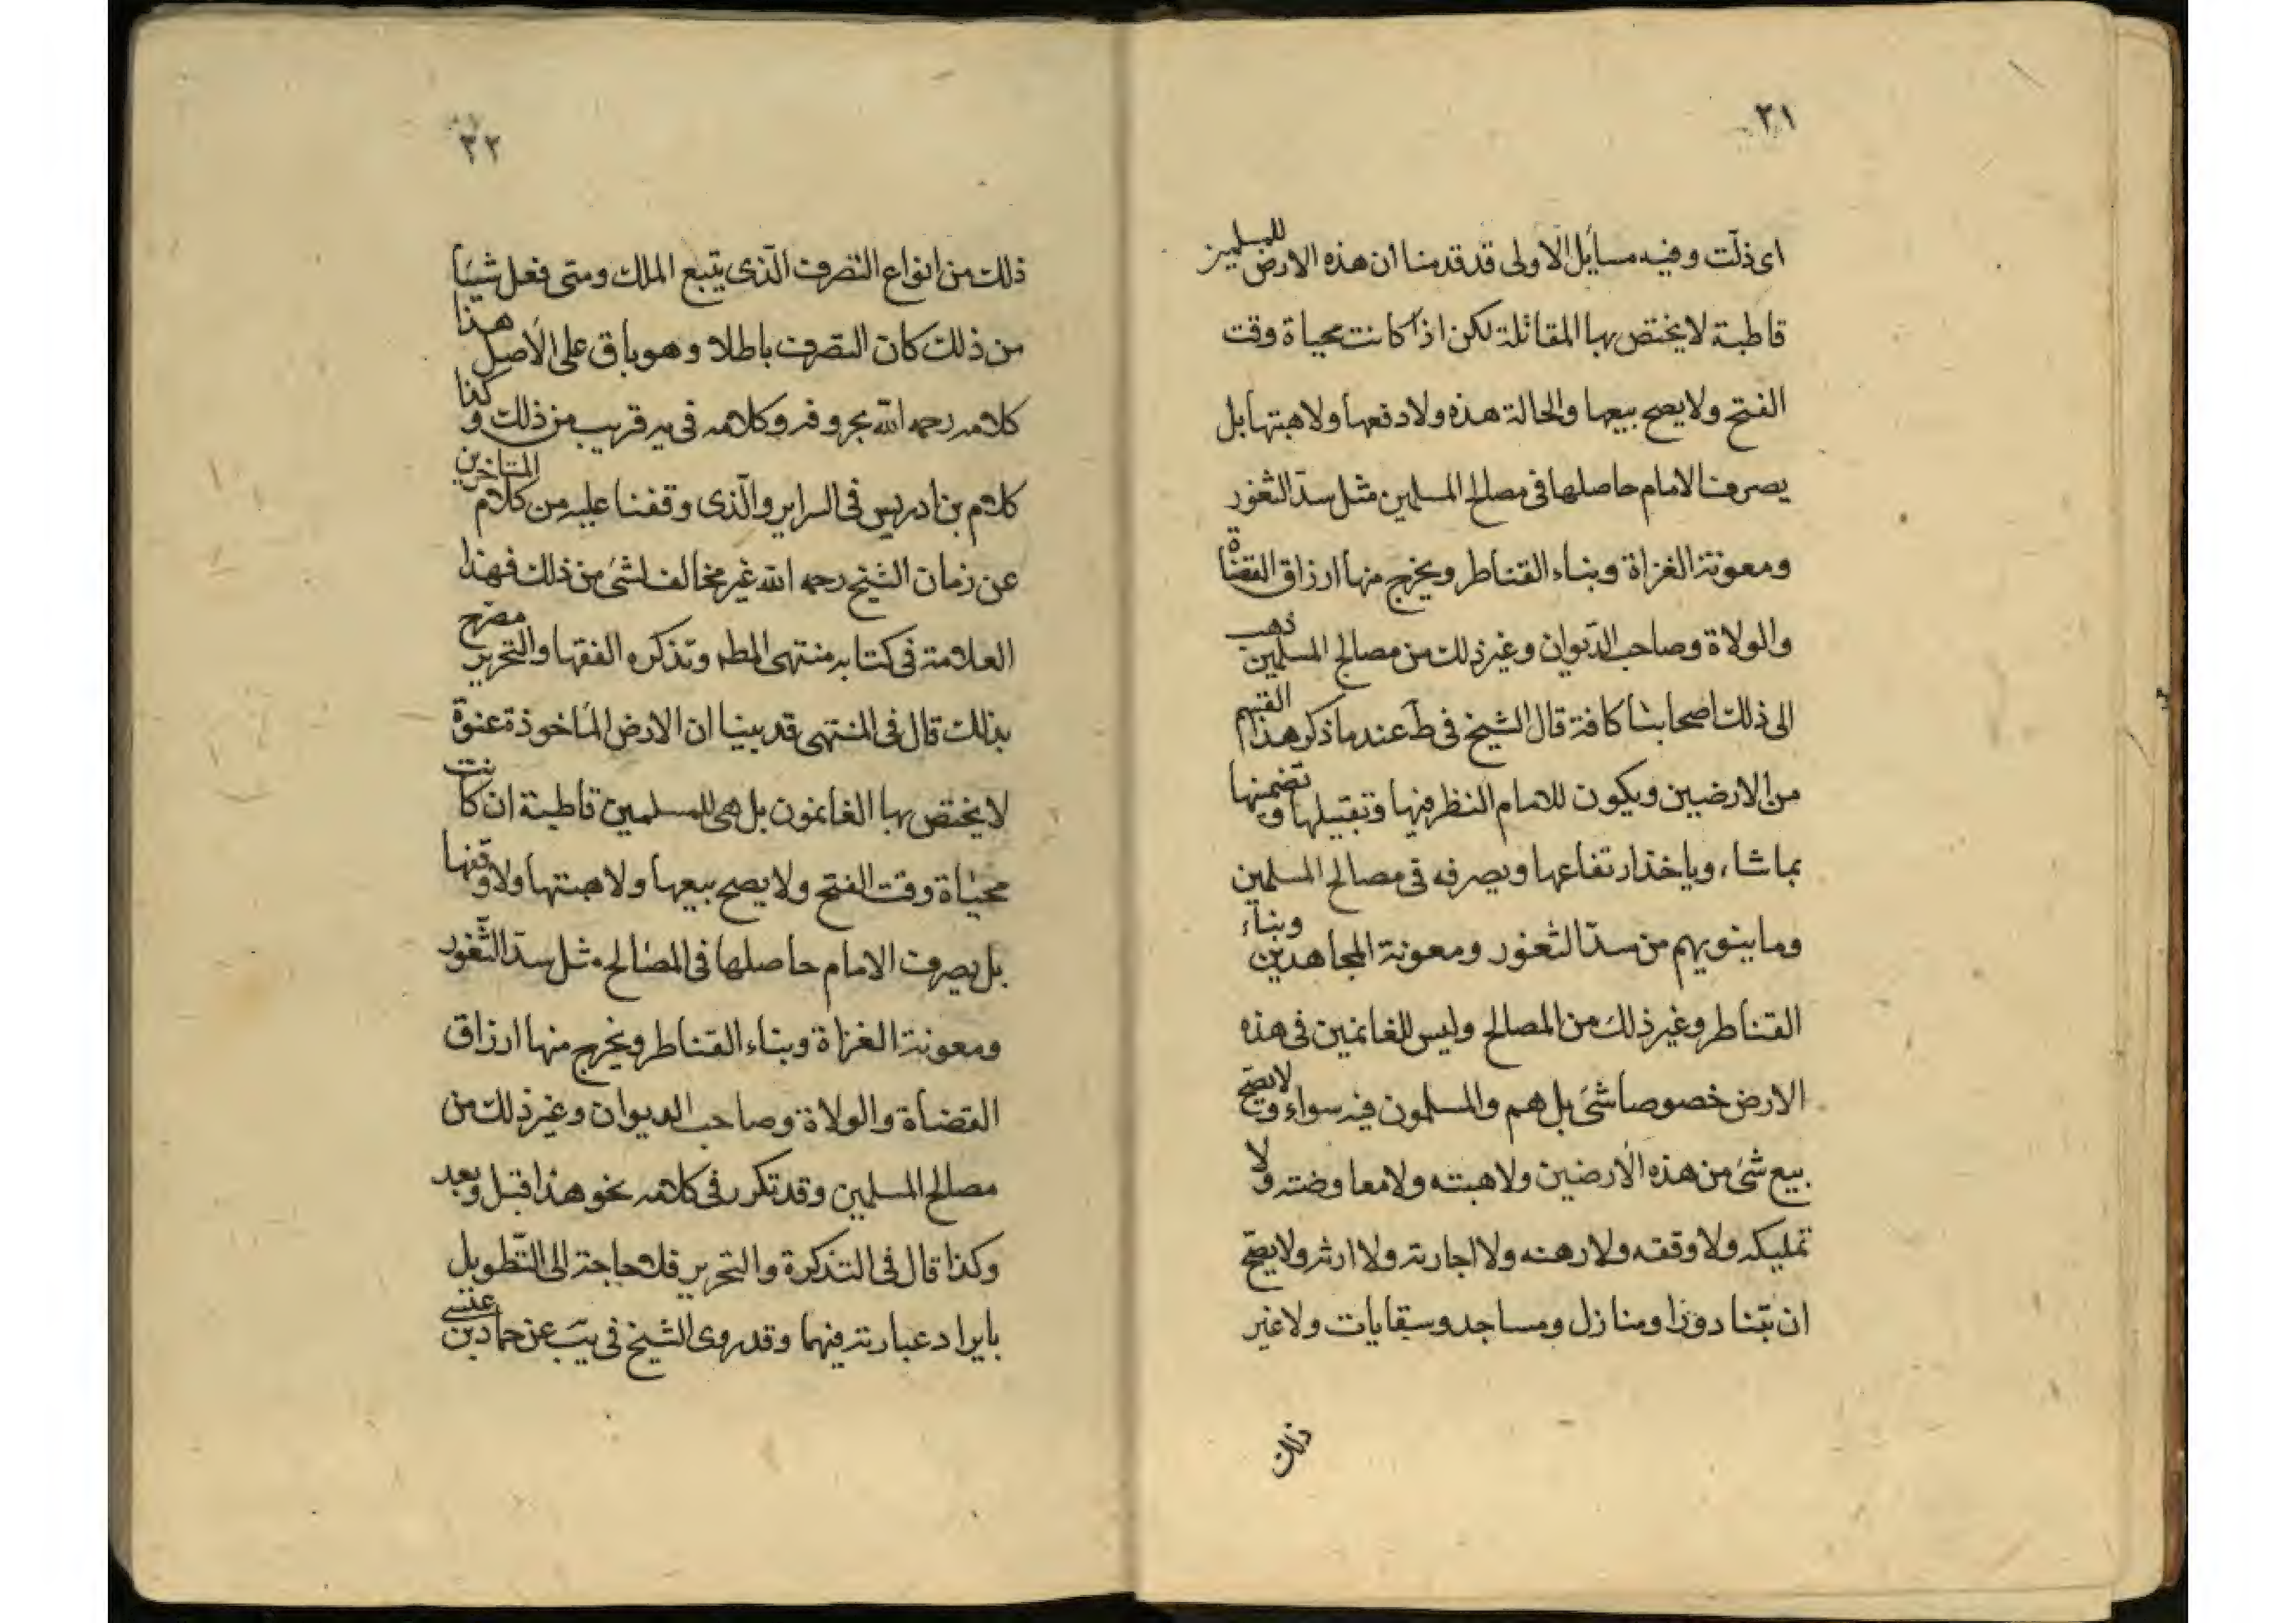 ٣١
اى ذلّت وفيه مسايل الاولى قد قدمنا ان هذه الارض للمسلمين
قاطبة لا يختص بها المقاتلة لكن اذا كانت محياة وقت
الفتح ولا يصح بيعها والحالة هذه ولا دفعها ولا هبتها بل
يصرف الامام حاصلها فى مصالح المسلمين مثل سدّ الثغور
ومعونة الغزاة وبناء القناطر ويخرج منها ارزاق القضاة
والولاة وصاحب الدّيوان وغير ذلك من مصالح المسلمين ذهب
الى ذلك اصحابنا كافة قال الشيخ فى ط عند ما ذكر هذا القسم
من الارضيين ويكون للامام النظر فيها وتقبيلها وتضمنها
بما شاء وياخذ ارتفاعها ويصرفه فى مصالح المسلمين
وما ينوبهم من سدّ الثغور ومعونة المجاهدين وبناء
القناطر وغير ذلك من المصالح وليس للغانمين فى هذه
الارض خصوصا شئ بل هم والمسلمون فيه سواء ولا يصح
بيع شئ من هذه الارضين ولا هبته ولا معاوضته ولا
تمليكه ولا وقفه ولا رهنه ولا اجارته ولا ارثه ولا يصحّ
ان تبنا دورا ومنازل ومساجد وسقايات ولا غير
ذلك
٣٢
ذلك من انواع التصرف الّذى يتبع الملك ومتى فعل شيئا
من ذلك كان التصرف باطلا وهو باق على الاصل هذا
كلامه رحمه الله بحروفه وكلامه فى يه قريب من ذلك وكذا
كلام بن ادريس فى السراير والّذى وقفنا عليه من كلام المتاخرين
عن زمان الشيخ رحمه الله غير مخالف لشئ من ذلك فهذا
العلامة فى كتابه منتهى المطلب وتذكره الفقها والتحرير مصرح
بذلك قال فى المنتهى قد بينا ان الارض الماخوذة عنوة
لا يختص بها الغانمون بل هى للمسلمين قاطبة ان كانت
محياة وقت الفتح ولا يصح بيعها ولا هبتها ولا وقفها
بل يصرف الامام حاصلها فى المصالح مثل سدّ الثّغور
ومعونة الغزاة وبناء القناطر ويخرج منها ارزاق
القضاة والولاة وصاحب الديوان وغير ذلك من
مصالح المسلمين وقد تكرر فى كلامه نحو هذا قبل وبعد
وكذا قال فى التذكرة والتحرير فلا حاجة الى التّطويل
بايراد عبارته فيهما وقد روى الشيخ فى يب عن حماد بن عيسى